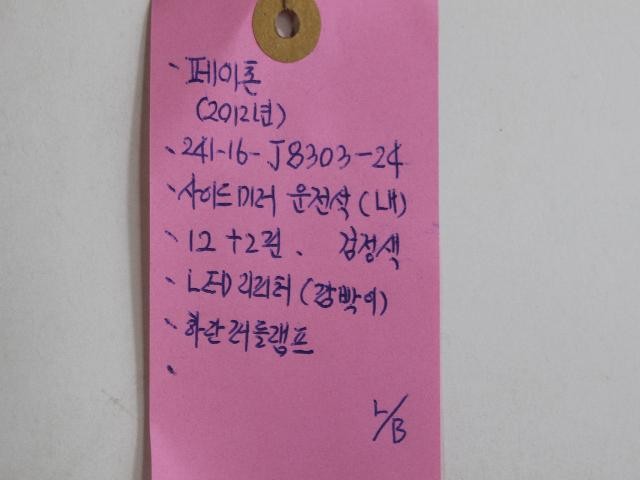 - 페이톤
(2012년)
- 241-16-J8303-24
- 사이드미러 운전석 (내)
- 12+2핀. 검정색
- LED 리피터 (깜박이)
- 하단 퍼들램프
-
L/B